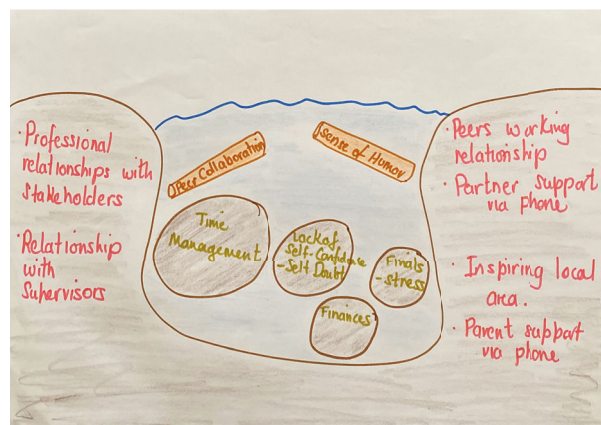 · Professional
relationships with
stakeholders
· Relationship
with
Supervisors
Peer Collaboration
Sense of Humor
Time
Management
Lack of
Self-Confidence
- Self Doubt
Finals
- stress
Finances
· Peers working
relationship
· Partner support
via phone
· Inspiring local
area.
· Parent support
via phone